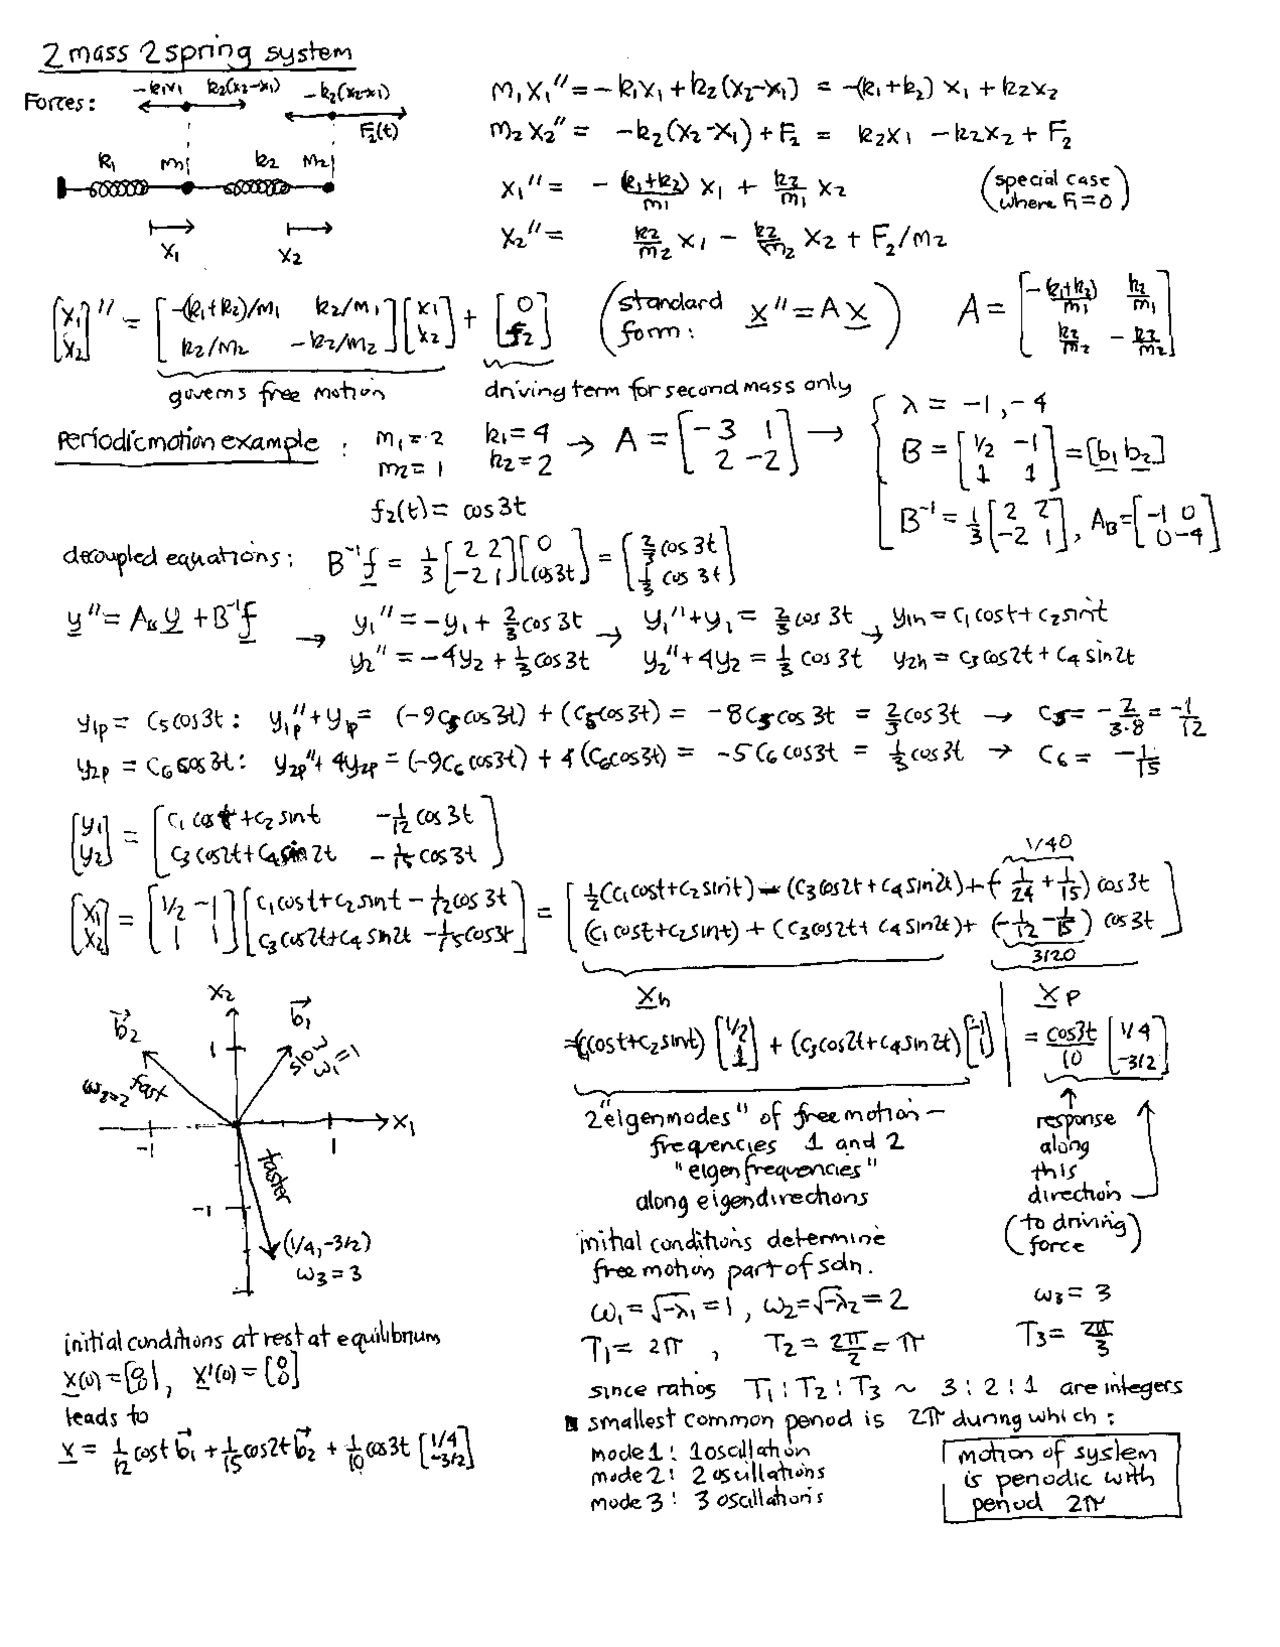 2 mass 2 spring system
Forces: -k₁x₁ k₂(x₂-x₁) -k₂(x₂-x₁) F₂(t)
k₁ m₁ k₂ m₂
x₁ x₂
m₁x₁'' = -k₁x₁ + k₂(x₂-x₁) = -(k₁+k₂) x₁ + k₂x₂
m₂x₂'' = -k₂(x₂-x₁) + F₂ = k₂x₁ - k₂x₂ + F₂
x₁'' = -(k₁+k₂)/m₁ x₁ + k₂/m₁ x₂ (special case where F₁=0)
x₂'' = k₂/m₂ x₁ - k₂/m₂ x₂ + F₂/m₂
[x₁ x₂]'' = [-(k₁+k₂)/m₁ k₂/m₁; k₂/m₂ -k₂/m₂][x₁; x₂] + [0; f₂] (standard form: x'' = A x) A = [-(k₁+k₂)/m₁ k₂/m₁; k₂/m₂ -k₂/m₂]
governs free motion driving term for second mass only
Periodic motion example: m₁=2 k₁=4 → A = [-3 1; 2 -2] →
m₂=1 k₂=2
f₂(t) = cos3t
λ = -1, -4
B = [1/2 -1; 1 1] = [b₁ b₂]
B⁻¹ = 1/3 [2 2; -2 1], A_B = [-1 0; 0 -4]
decoupled equations: B⁻¹f = 1/3 [2 2; -2 1][0; cos3t] = [2/3 cos3t; 1/3 cos 3t]
y'' = A_B y + B⁻¹f → y₁'' = -y₁ + 2/3 cos3t → y₁''+y₁ = 2/3 cos 3t → y₁h = c₁cost + c₂sint
y₂'' = -4y₂ + 1/3 cos3t y₂''+4y₂ = 1/3 cos 3t y₂h = c₃cos2t + c₄ sin2t
y₁p = c₅cos3t: y₁p''+y₁p = (-9c₅cos3t) + (c₅cos3t) = -8c₅cos3t = 2/3 cos3t → c₅ = -2/(3·8) = -1/12
y₂p = c₆cos3t: y₂p''+4y₂p = (-9c₆cos3t) + 4(c₆cos3t) = -5c₆cos3t = 1/3 cos3t → c₆ = -1/15
[y₁; y₂] = [c₁cost+c₂sint -1/12 cos3t; c₃cos2t+c₄sin2t -1/15 cos3t]
[x₁; x₂] = [1/2 -1; 1 1][c₁cost+c₂sint - 1/12 cos 3t; c₃cos2t+c₄sin2t - 1/15 cos3t] = [1/2(c₁cost+c₂sint) - (c₃cos2t+c₄sin2t) + (-1/24 + 1/15) cos3t; (c₁cost+c₂sint) + (c₃cos2t+c₄sin2t) + (-1/12 - 1/15) cos3t]
1/40
3/20
x₂
b₂ b₁
1
slow ω₁=1
ω₂=2 fast
x₁
-1 1
faster
-1
(1/4, -3/2)
ω₃=3
x_h
= (c₁cost+c₂sint) [1/2; 1] + (c₃cos2t+c₄sin2t) [-1; 1]
x_p
= cos3t/10 [1/4; -3/2]
2 "eigenmodes" of free motion –
frequencies 1 and 2
"eigenfrequencies"
along eigendirections
response
along
this
direction
(to driving force)
initial conditions determine
free motion part of soln.
ω₁ = √-λ₁ = 1, ω₂ = √-λ₂ = 2 ω₃ = 3
T₁ = 2π, T₂ = 2π/2 = π T₃ = 2π/3
initial conditions at rest at equilibrium
x(0) = [0; 0], x'(0) = [0; 0]
leads to
x = 1/12 cost b₁ + 1/15 cos2t b₂ + 1/10 cos3t [1/4; -3/2]
since ratios T₁:T₂:T₃ ~ 3:2:1 are integers
smallest common period is 2π during which:
mode 1: 1 oscillation
mode 2: 2 oscillations
mode 3: 3 oscillations
motion of system
is periodic with
period 2π